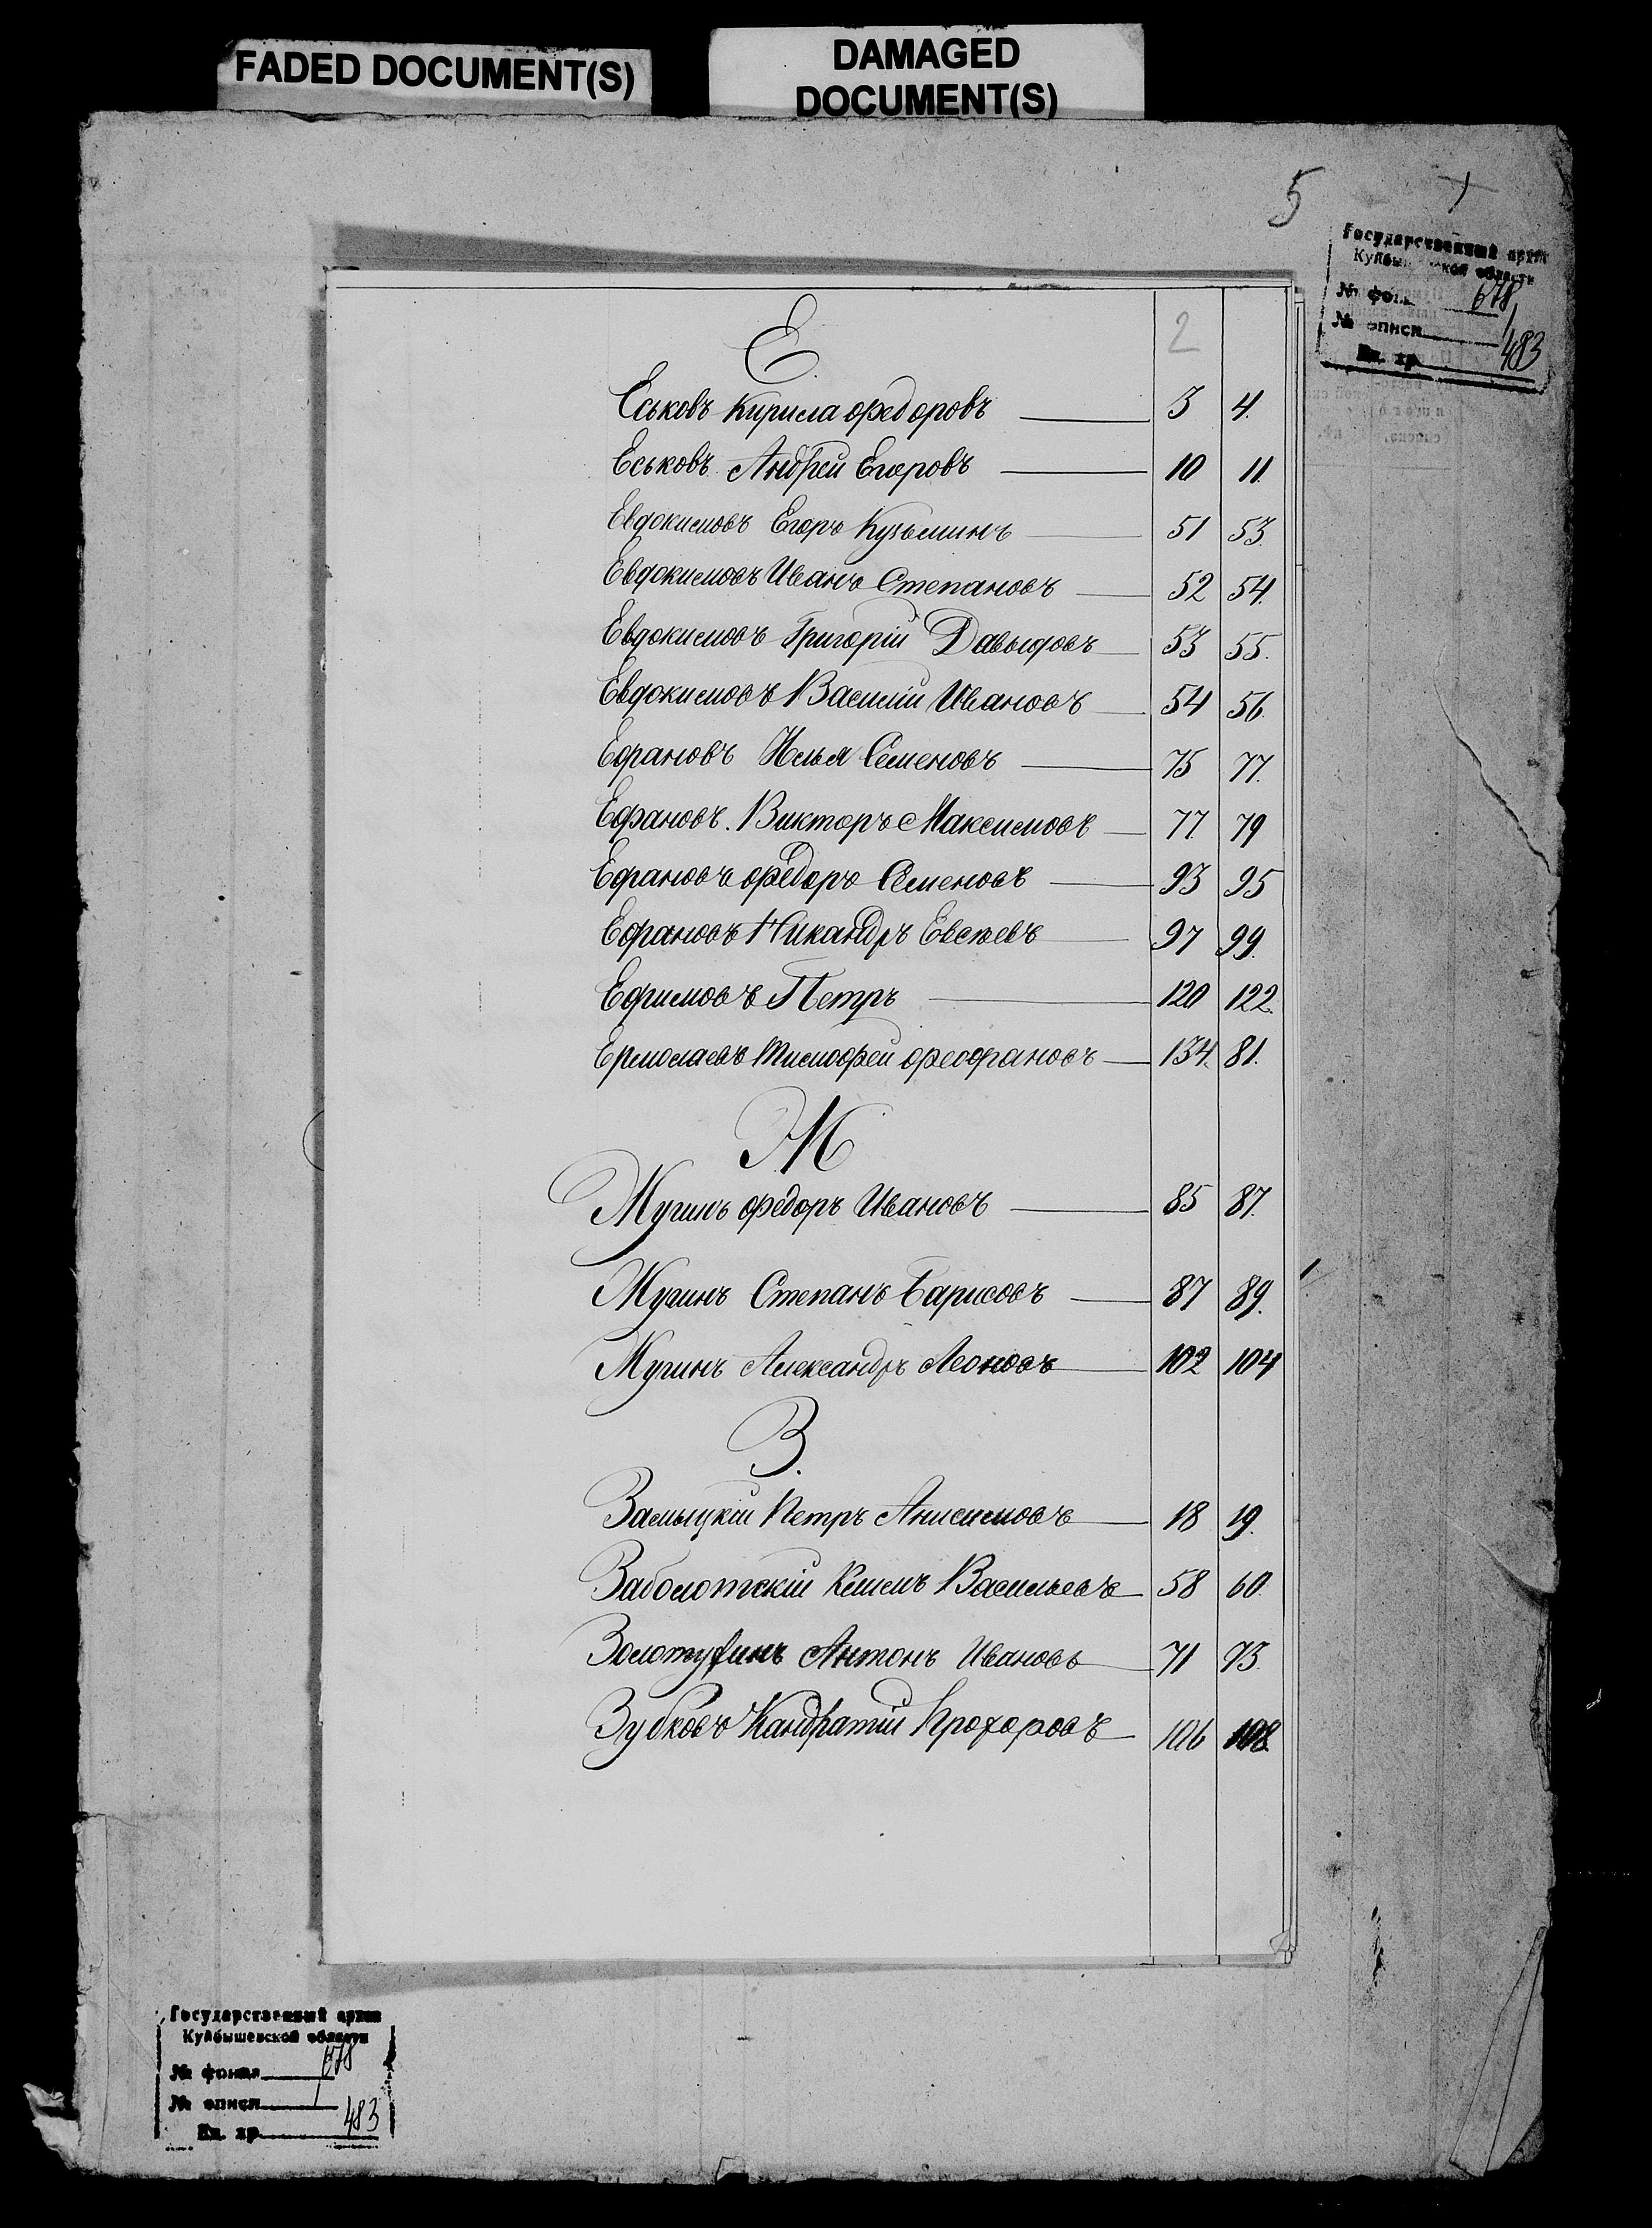 FADED DOCUMENT(S)
DAMAGED
DOCUMENT(S)
5
Государственный архив
Куйбышевской области
№ фонда 678
№ описи 1
Ед. хр. 483
2
Е.
Еськовъ Кирила Федоровъ 3 4.
Еськовъ Андрей Егоровъ 10 11.
Евдокимовъ Егоръ Кузьминъ 51 53.
Евдокимовъ Иванъ Степановъ 52 54.
Евдокимовъ Григорій Давыдовъ 53 55.
Евдокимовъ Василій Ивановъ 54 56.
Ефановъ Илья Семеновъ 75 77.
Ефановъ. Викторъ Максимовъ 77 79
Ефановъ Федоръ Семеновъ 93 95
Ефановъ Никандръ Евсѣевъ 97 99.
Ефимовъ Петръ 120 122.
Ермолаевъ Тимофей Феофановъ 134. 81.
Ж
Жугинъ Федоръ Ивановъ 85 87.
Жугинъ Степанъ Барисовъ 87 89.
Жугинъ Александръ Леоновъ 102 104
З.
Замыцкій Петръ Анисимовъ 18 19.
Заболотскій Климъ Васильевъ 58 60.
Золотухинъ Антонъ Ивановъ 71 73.
Зубковъ Кандратій Прохоровъ 106 108.
Государственный архив
Куйбышевской области
№ фонда 678
№ описи 1
Ед. хр. 483